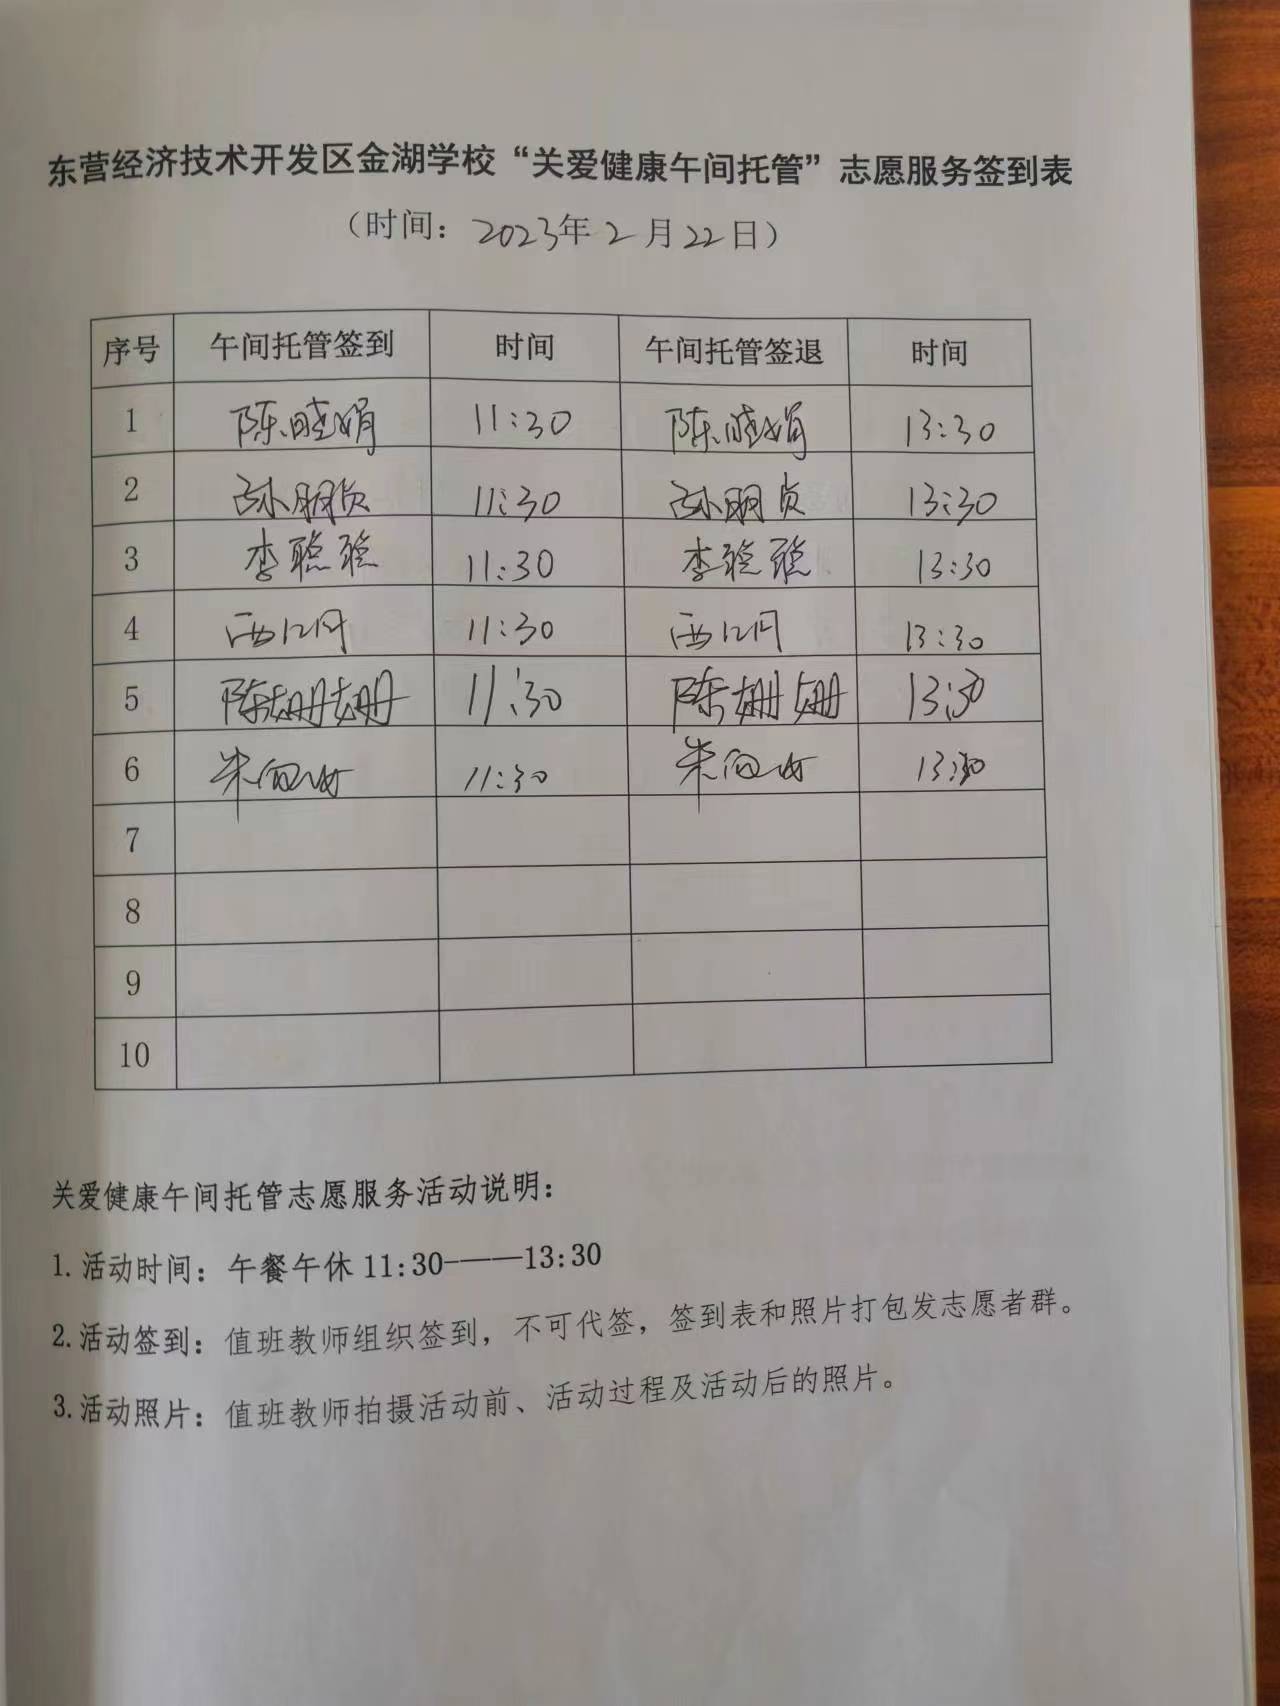 东营经济技术开发区金湖学校“关爱健康午间托管”志愿服务签到表
（时间：2023年2月22日）
序号 午间托管签到 时间 午间托管签退 时间
1 陈晓娟 11:30 陈晓娟 13:30
2 孙朋贞 11:30 孙朋贞 13:30
3 李聪聪 11:30 李聪聪 13:30
4 11:30 13:30
5 陈姗姗 11:30 陈姗姗 13:30
6 11:30 13:30
7
8
9
10
关爱健康午间托管志愿服务活动说明：
1.活动时间：午餐午休11:30———13:30
2.活动签到：值班教师组织签到，不可代签，签到表和照片打包发志愿者群。
3.活动照片：值班教师拍摄活动前、活动过程及活动后的照片。